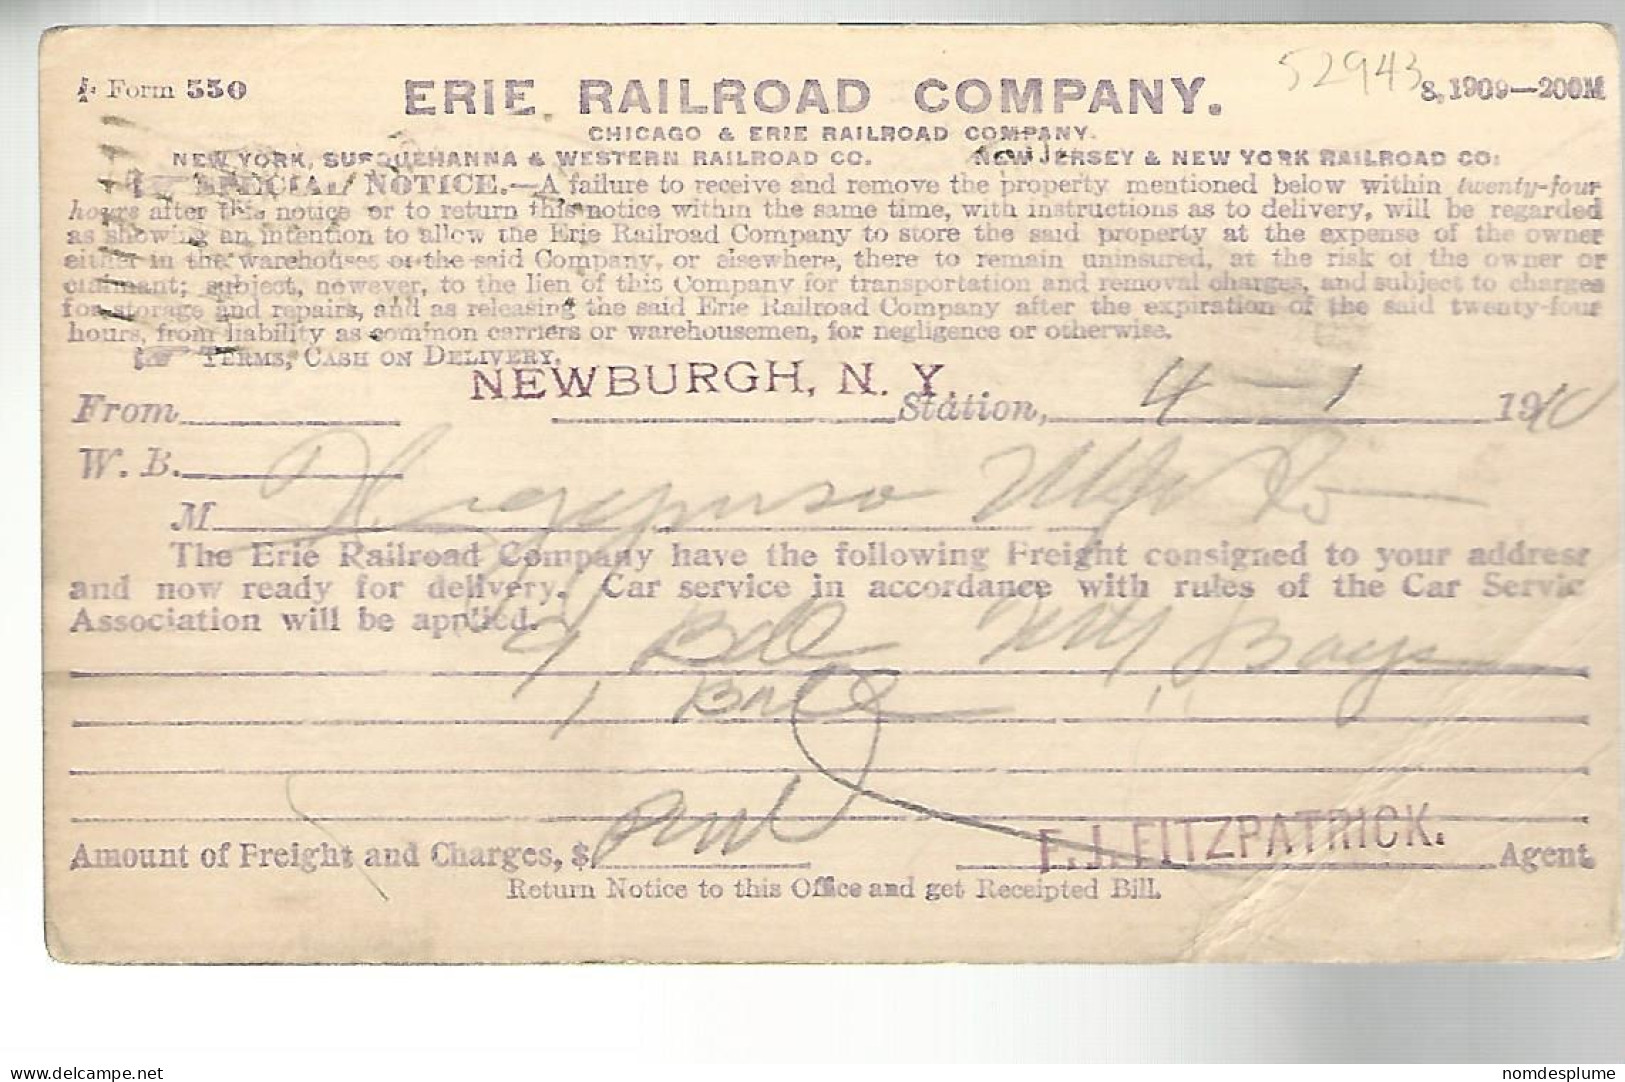 Form 550
ERIE RAILROAD COMPANY.
52943
8, 1909—200M
CHICAGO & ERIE RAILROAD COMPANY.
NEW YORK, SUSQUEHANNA & WESTERN RAILROAD CO. NEW JERSEY & NEW YORK RAILROAD CO.
SPECIAL NOTICE.—A failure to receive and remove the property mentioned below within twenty-four
hours after this notice or to return this notice within the same time, with instructions as to delivery, will be regarded
as showing an intention to allow the Erie Railroad Company to store the said property at the expense of the owner
either in the warehouses of the said Company, or elsewhere, there to remain uninsured, at the risk of the owner or
claimant; subject, however, to the lien of this Company for transportation and removal charges, and subject to charges
for storage and repairs, and as releasing the said Erie Railroad Company after the expiration of the said twenty-four
hours, from liability as common carriers or warehousemen, for negligence or otherwise.
TERMS, CASH ON DELIVERY.
NEWBURGH, N. Y.
From Station, 4 – 1 1910
W. B.
M Mfg Co
The Erie Railroad Company have the following Freight consigned to your address
and now ready for delivery. Car service in accordance with rules of the Car Servic
Association will be applied.
9 Bdl Bags
1 Bdl " "
Amount of Freight and Charges, $
F. J. FITZPATRICK. Agent.
Return Notice to this Office and get Receipted Bill.
delcampe.net
nomdesplume